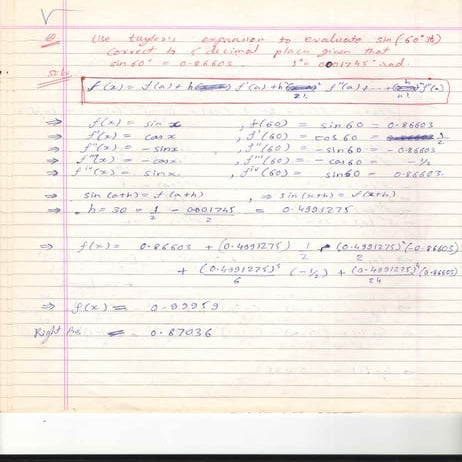 Q. Use taylor's expansion to evaluate sin(60°30')
correct to 5 decimal place given that
sin 60° = 0.86603 1° = 0.001745 rad.
Solu:
f(x) = f(a) + h f'(a) + h² f''(a) + ... + hⁿ fⁿ(a)
2! n!
⇒ f(x) = sin x , f(60) = sin 60 = 0.86603
⇒ f'(x) = cos x , f'(60) = cos 60 = 1/2
⇒ f''(x) = -sin x , f''(60) = -sin 60 = -0.86603
⇒ f'''(x) = -cos x , f'''(60) = -cos 60 = -1/2
⇒ f''''(x) = sin x , f''''(60) = sin 60 = 0.86603
⇒ sin(a+h) = f(a+h) , ⇒ sin(x+h) = f(x+h)
⇒ h = 30 = 1/2 - 0.001745/2 = 0.4991275
⇒ f(x) = 0.86603 + (0.4991275) 1/2 + (0.4991275)²/2 (-0.86603)
+ (0.4991275)³/6 (-1/2) + (0.4991275)⁴/24 (0.86603)
⇒ f(x) = 0.99959
Right Ans = 0.87036